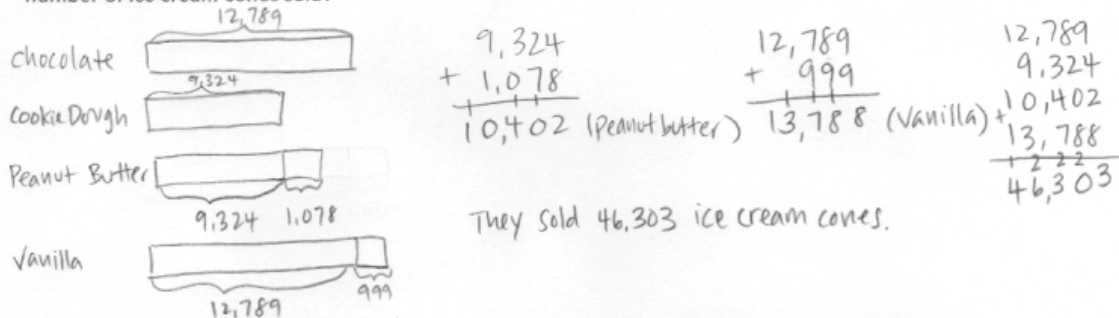 12,789
Chocolate
9,324
Cookie Dough
Peanut Butter
9,324 1,078
Vanilla
12,789 999
9,324
+ 1,078
10,402 (Peanut butter)
12,789
+ 999
13,788 (Vanilla)
12,789
9,324
10,402
+ 13,788
1 2 2 2
46,303
They sold 46,303 ice cream cones.